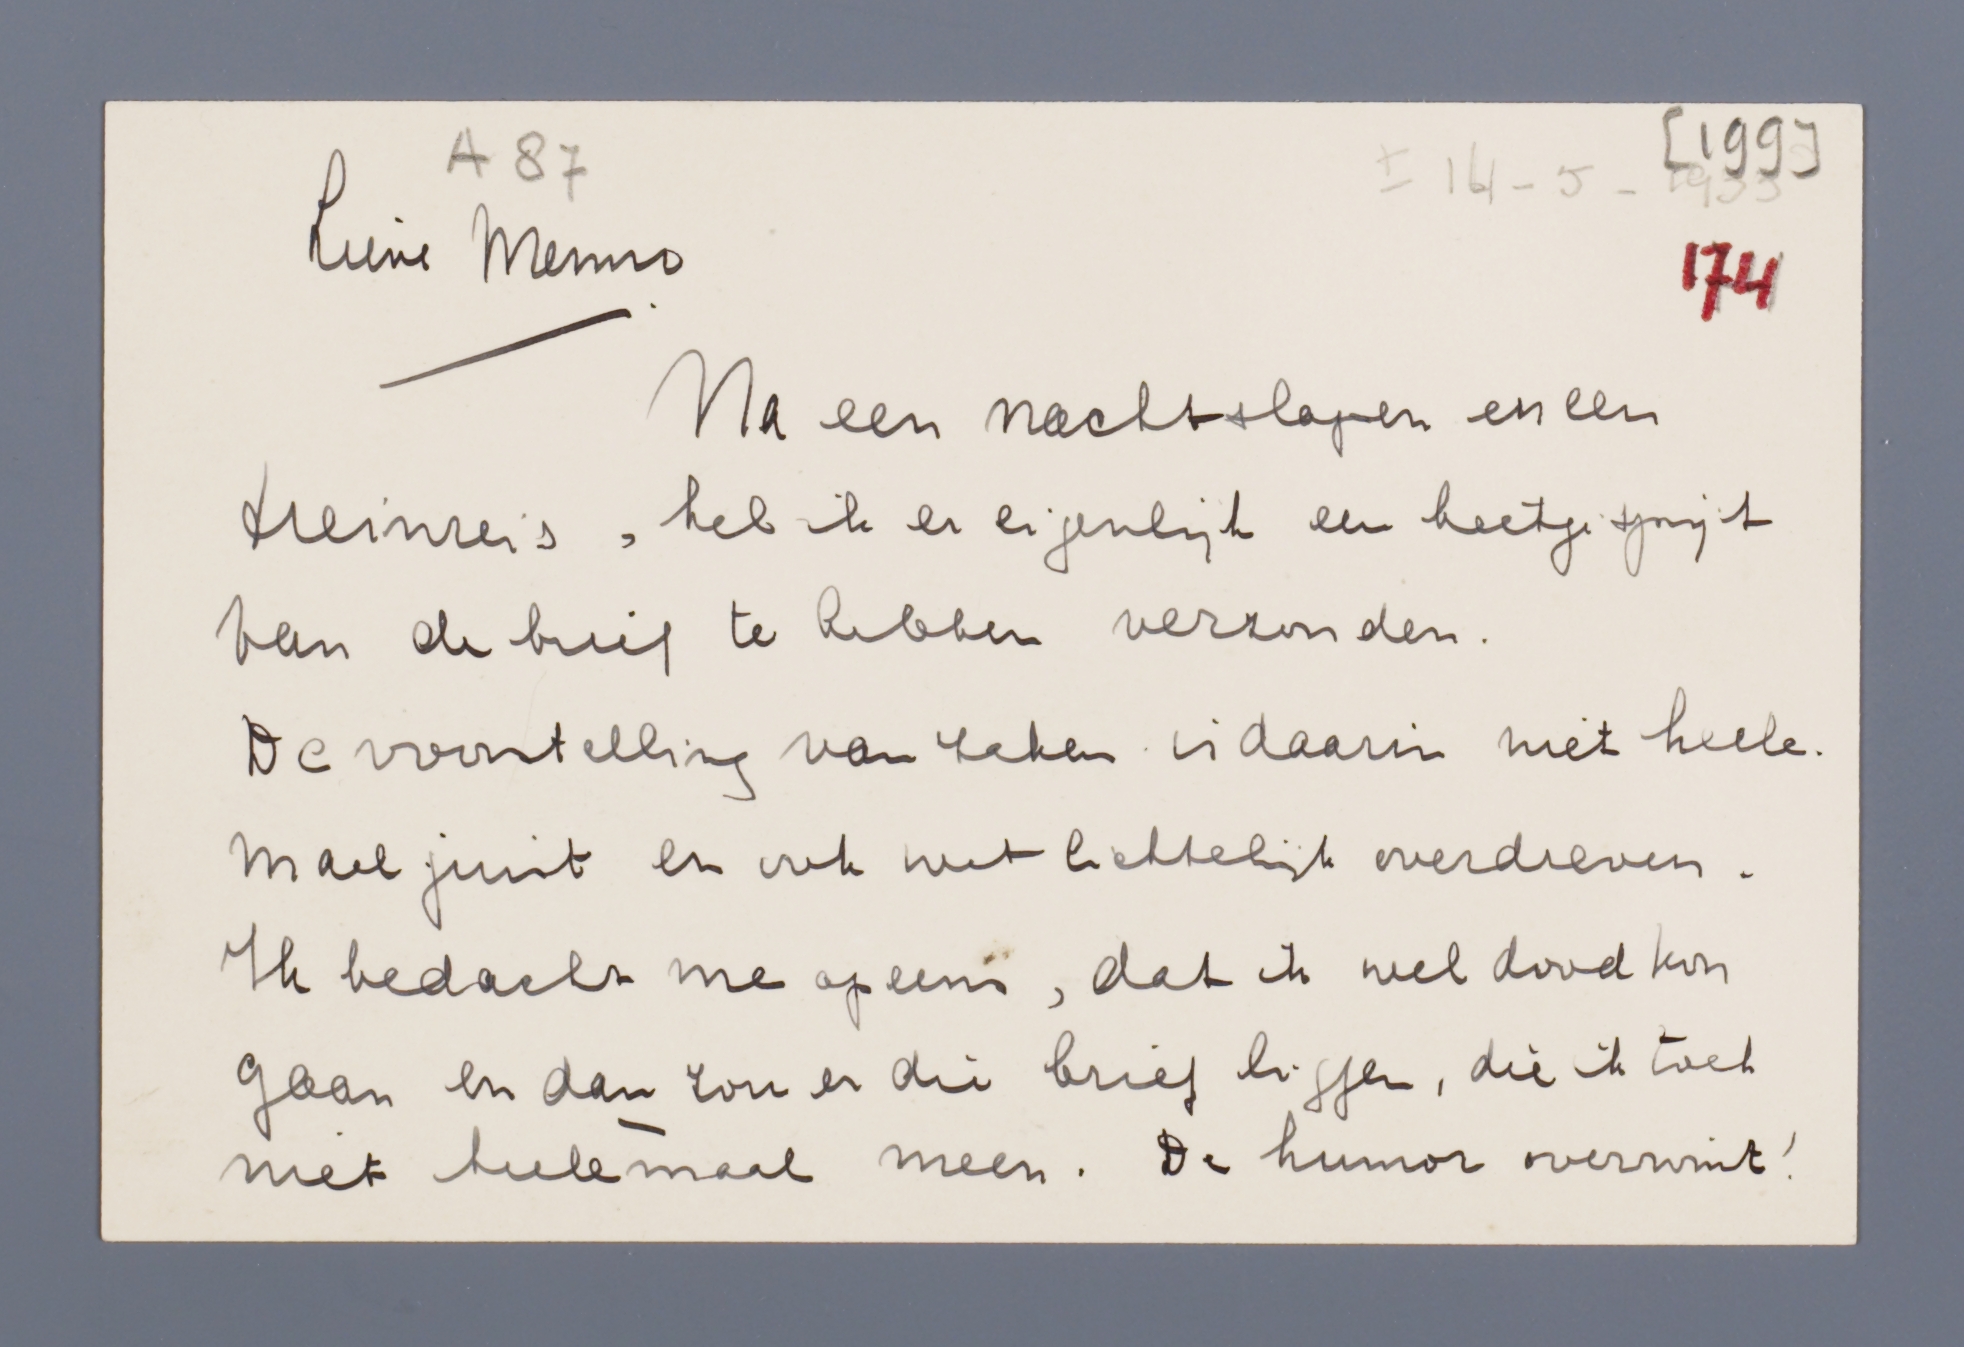 A 87
[199]
± 14-5-1933
174
Lieve Menno
Na een nacht slapen en een
treinreis, heb ik er eigenlijk een beetje spijt
van de brief te hebben verzonden.
De voorstelling van zaken is daarin niet heele-
maal juist en ook wat lichtelijk overdreven.
Ik bedacht me opeens, dat ik wel dood kon
gaan en dan zou er die brief liggen, die ik toch
niet heelemaal meen. De humor overwint!